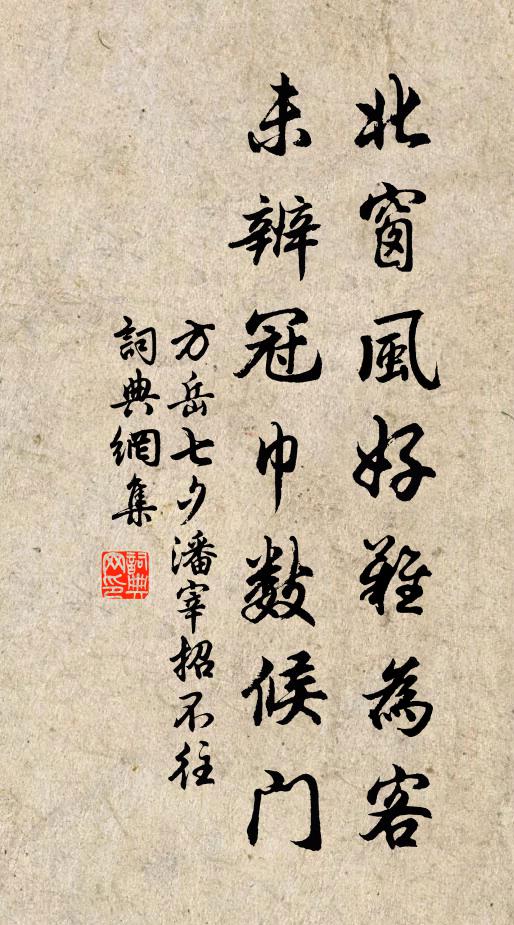 北窗風好難為客
未辨冠巾數候門
方岳七夕潘宰招不往
詞典網集
詞典网印